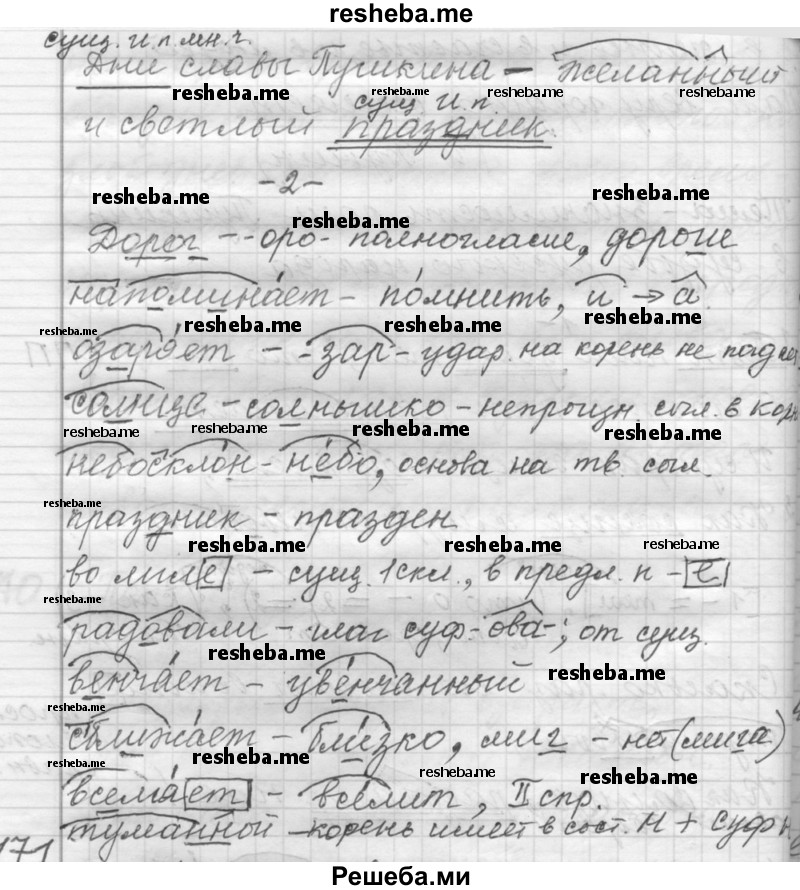 resheba.me
сущ. И п мн. ч.
Дни славы Пушкина – желанный
resheba.me resheba.me resheba.me resheba.me
сущ И.п.
и светлый праздник.
-2-
resheba.me resheba.me resheba.me
Дорог - -оро- полногласие, дороше
напоминает – помнить, и → а
resheba.me resheba.me resheba.me resheba.me
озаряет – -зар- удар. на корень не падает
солнце – солнышко – непроизн. согл. в корн
resheba.me resheba.me resheba.me resheba.me
небосклон – небо, основа на тв. согл.
resheba.me resheba.me resheba.me
праздник – празден
resheba.me resheba.me resheba.me
во мгле – сущ. 1 скл., в предл. п - е
resheba.me resheba.me resheba.me
радовали – глаг суф -ова-; от сущ.
resheba.me
венчает – увенчанный resheba.me
resheba.me
сближает – близко, миг – нет (мига)
resheba.me resheba.me resheba.me resheba.me
вселяет – вселит, II спр.
туманной – корень имеет в сост. н + суф н
171
Решеба.ми